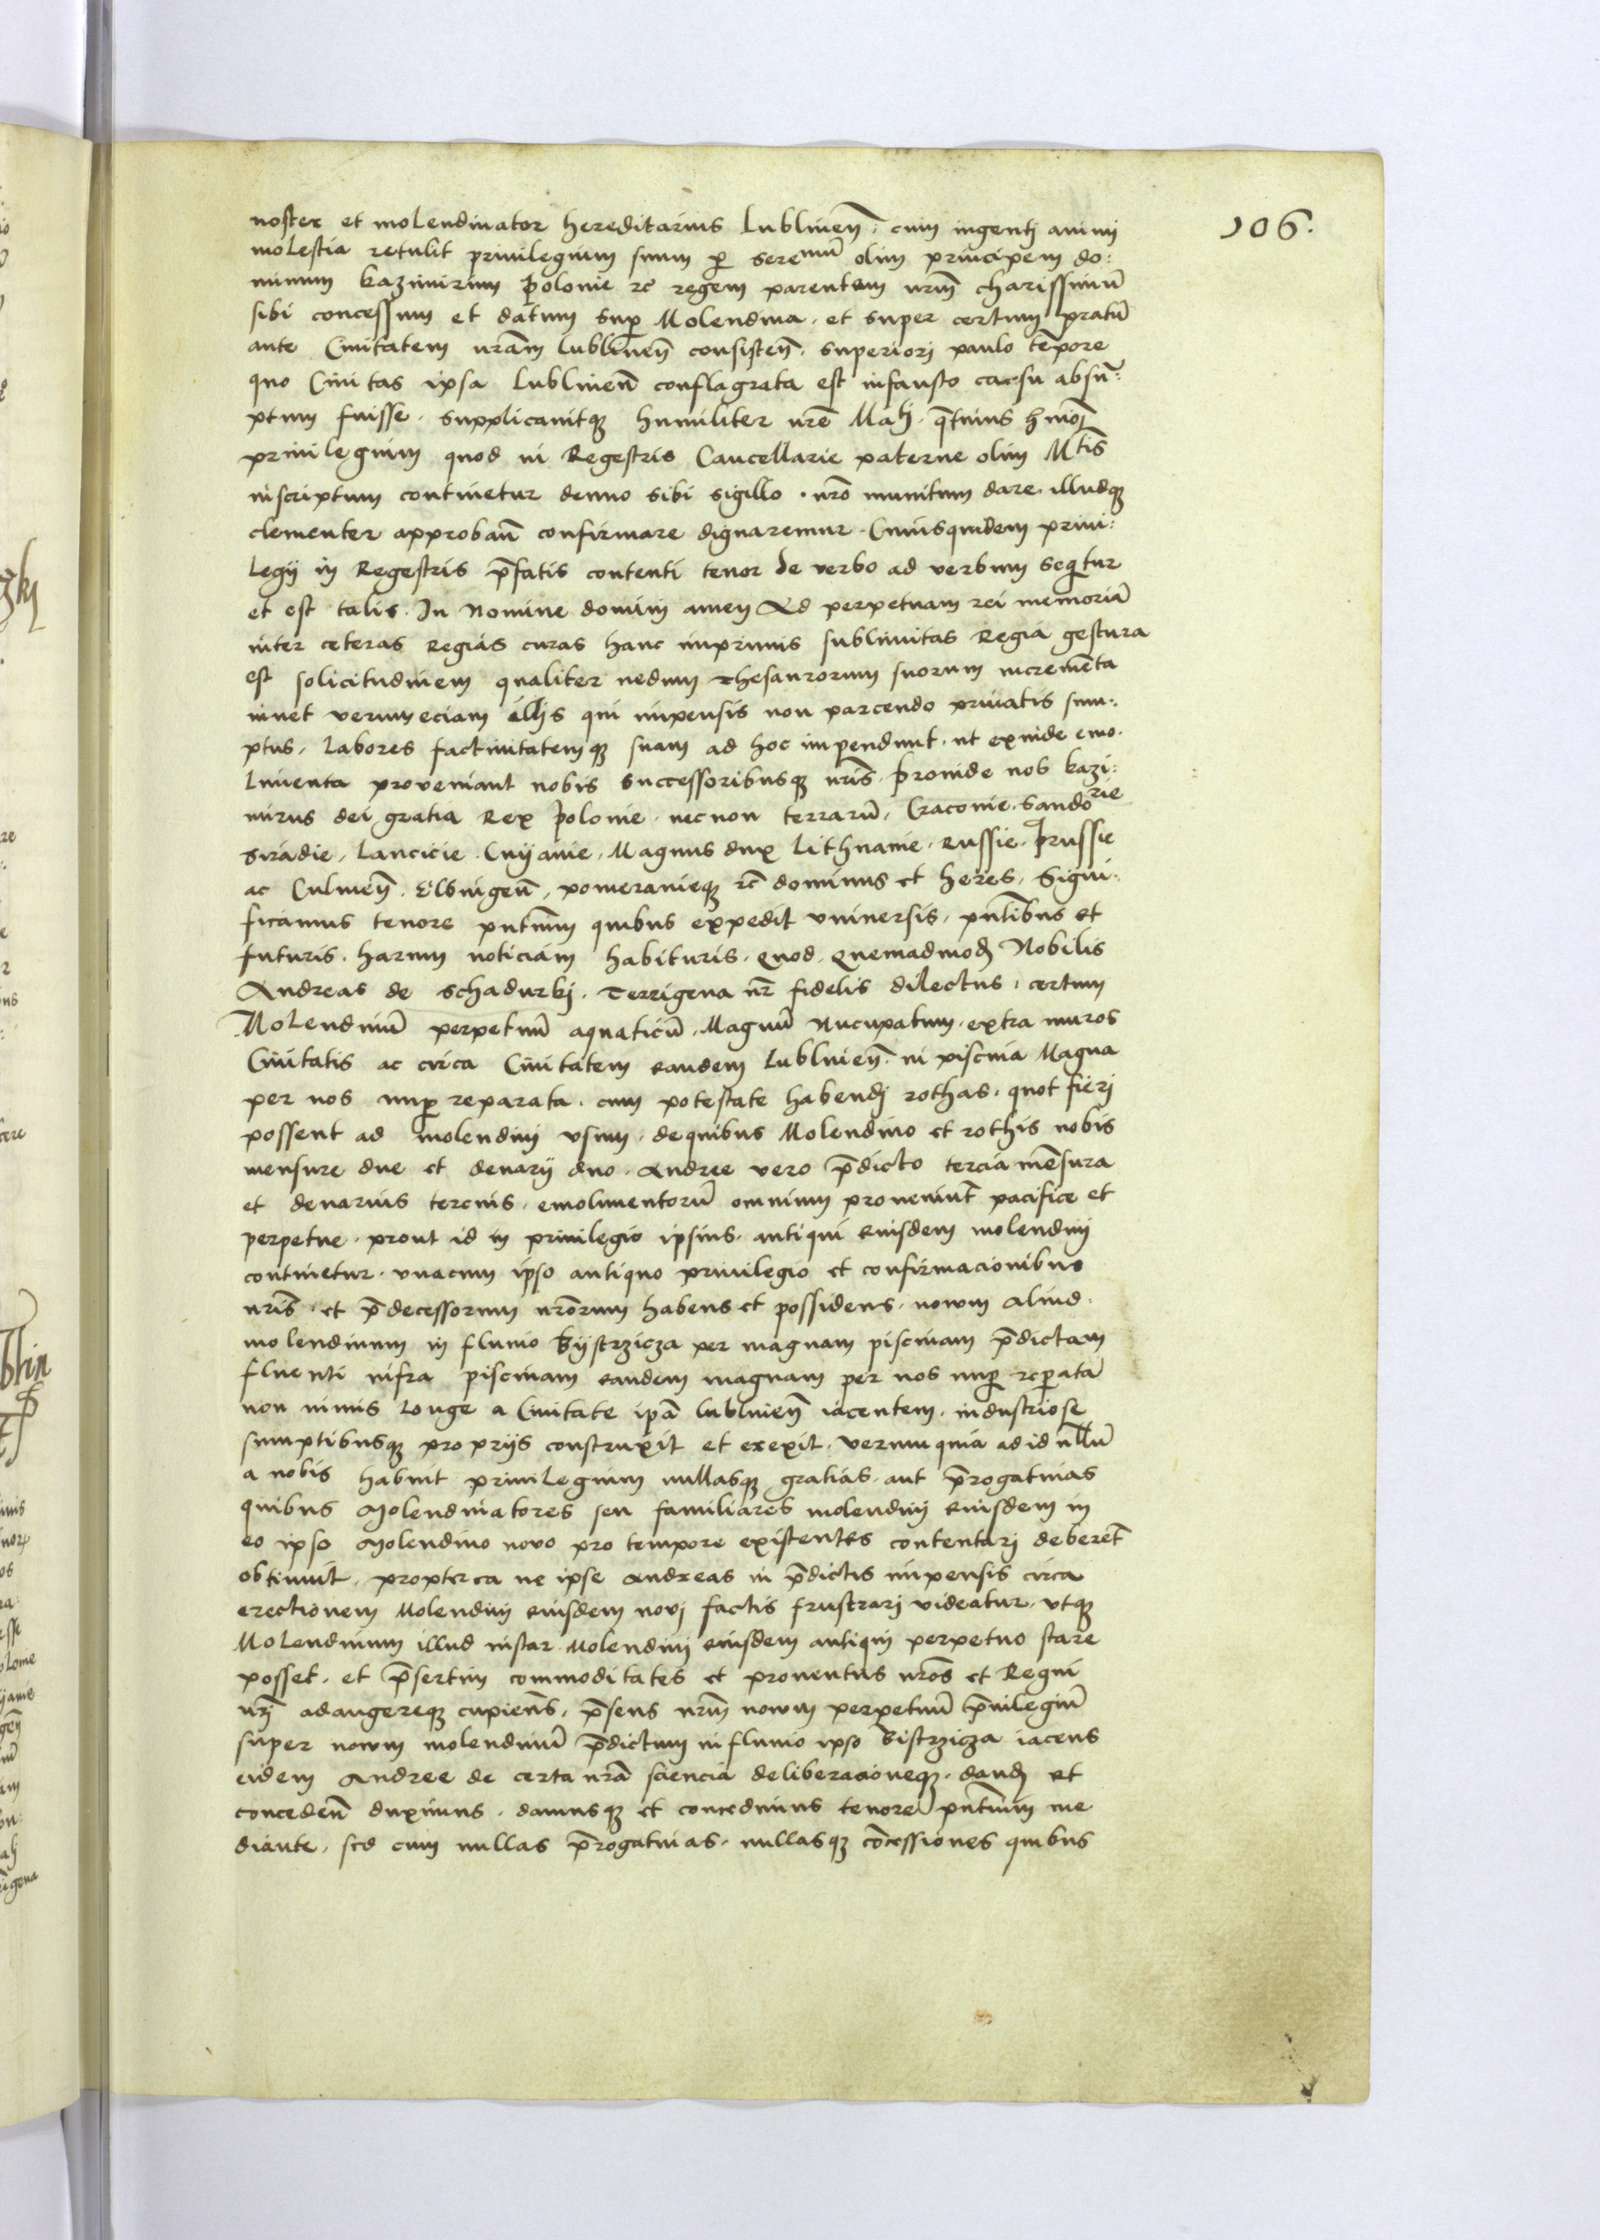 106.
noster et molendinator hereditarius Lublineñ. cum ingenti animi
molestia retulit privilegium suum p̱ serenmū olim principem do:
minum kazimirum Polonie rc̄ regem parentem nr̄m charissimū
sibi concessum et datum sup̱ Molendina. et super certum pratū
ante Civitatem nr̄am Lublineñ consisteñ. superiori paulo tēpore
quo Civitas ipsa Lublineñ conflagrata est infausto casu absū:
ptum fuisse. supplicavitqꝫ humiliter nr̄e Mati. q̄tinus hmōi
privilegium quod in Regestris Cancellarie paterne olim Mtis
inscriptum continetur denuo sibi sigillo. nr̄o munitum dare. illudqꝫ
clementer approbañ confirmare dignaremur. Cuiusquidem privi:
legij in Regestris p̄fatis contenti tenor de verbo ad verbum seq̄tur
et est talis. In Nomine domini amen Ad perpetuam rei memoriā
inter ceteras Regias curas hanc inprimis sublimitas Regia gestura
est solicitudinem qualiter nedum thesaurorum suorum incremēta
iuvet verumeciam illis qui inpensis non parcendo privatis sum:
ptus, labores factivitatemqꝫ suam ad hoc impendunt. ut exinde emo.
lumenta proveniant nobis successoribusqꝫ nr̄is. proinde nos kazi:
mirus dei gratia Rex Polonie. necnon terrarū, Cracovie. Sandorie
Siradie, Lancicie. Cuyavie, Magnus dux Lithuanie. Russie. Prussie
ac Culmeñ. Elbingeñ, pomeranieqꝫ rc̄ dominus et heres, Signi:
ficamus tenore pn̄tium quibus expedit universis, pn̄tibus et
futuris. harum noticiam habituris. quod. quemadmodꝫ Nobilis
Andreas de Schadurki. Terrigena nr̄ fidelis dilectus. certum
Molendinū perpetuū aquaticū. Magnū Nucupatum. extra muros
Civitatis ac circa Civitatem eandem Lublineñ. in piscina Magna
per nos nup̱ reparata. cum potestate habendi rothas. quot fieri
possent ad molendini usum. dequibus Molendino et rothis nobis
mensure due et denarij duo. Andree vero p̄dicto tercia mēsura
et denarius tercius. emolumentorū omnium proveniūt pacifice et
perpetue. prout id in privilegio ipsius. antiqui eiusdem molendini
continetur. unacum ipso antiquo privilegio et confirmacionibus
nr̄is. et p̄decessorum nr̄orum habens et possidens. novum aliud.
molendinum in fluvio Bystrzicza per magnam piscinam p̄dictam
fluenti infra piscinam eandem magnam per nos nup̱ rep̱atā
non nimis longe a Civitate ip̄a Lublineñ iacentem. industriose
sumptibusqꝫ proprijs construxit et erexit. verum quia ad id nullū
a nobis habuit privilegium nullasqꝫ gratias. aut p̄rogativas
quibus Molendinatores seu familiares molendini eiusdem in
eo ipso Molendino novo pro tempore existentes contentari deberēt
obtinuit. propterea ne ipse Andreas in p̄dictis inpensis circa
erectionem Molendini eiusdem novi factis frustrari videatur. utqꝫ
Molendinum illud instar Molendini eiusdem antiqui perpetuo stare
posset. et p̄sertim commoditates et proventus nr̄os et Regni
nr̄i adaugereqꝫ cupieñs, p̄sens nr̄m novum perpetuū p̄vilegiū
super novum molendinū p̄dictum in fluvio ipso Bistrzicza iacens
eidem Andree de certa nr̄a sciencia deliberacioneqꝫ. dandꝫ et
concedeñ duximus. damusqꝫ et concedimus tenore pn̄tium me
diante, sed cum nullas p̄rogativas. nullasqꝫ cōcessiones quibus